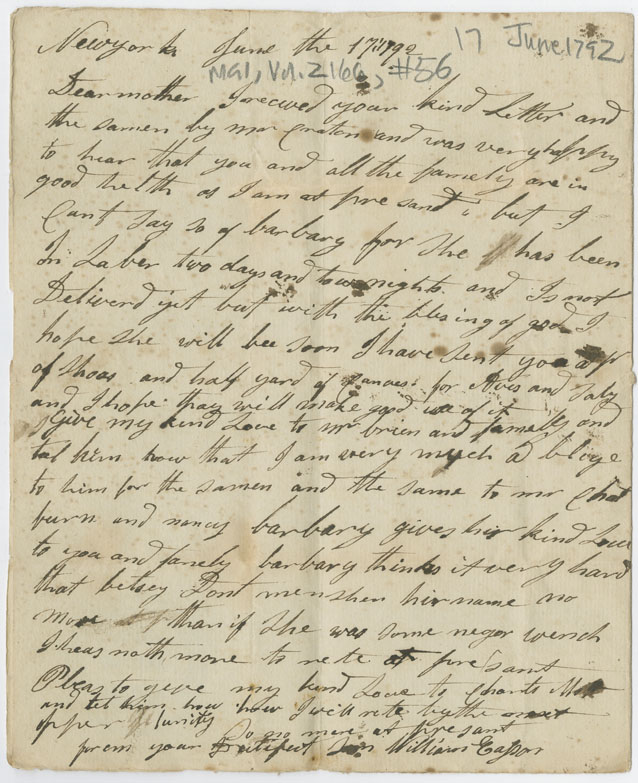 Newyork June the 17 1792
17 June 1792
MG1, Vol. 2166, #56
Dear mother I received your kind Letter and
the samen by mr Craton and was very happy
to hear that you and all the famely are in
good helth as I am at pre sant but I
Cant Say so of barbary for She has been
In Laber two days and tow nights and Is not
Deliverd yet but with the blesing of god I
hope she will bee soon I have sent you a pr
of Shoas and half yard of for Avis and Saby
and I hope thay will make good use of it
Give my kind Love to mr brien and famelly and
tel him how that I am very much a blige
to him for the samen and the same to mr Chat
burn and nancy barbary gives hir kind Love
to you and famely barbary thinks it very hard
that betsey Dont menshen hir name no
more than if She was some negor wench
I heas noth more to rete at pre sant
Pleas to geve my kind Love to Charls
and tel him how how I will rete by the next
opper tunity So no more at pre sant
from your Son William